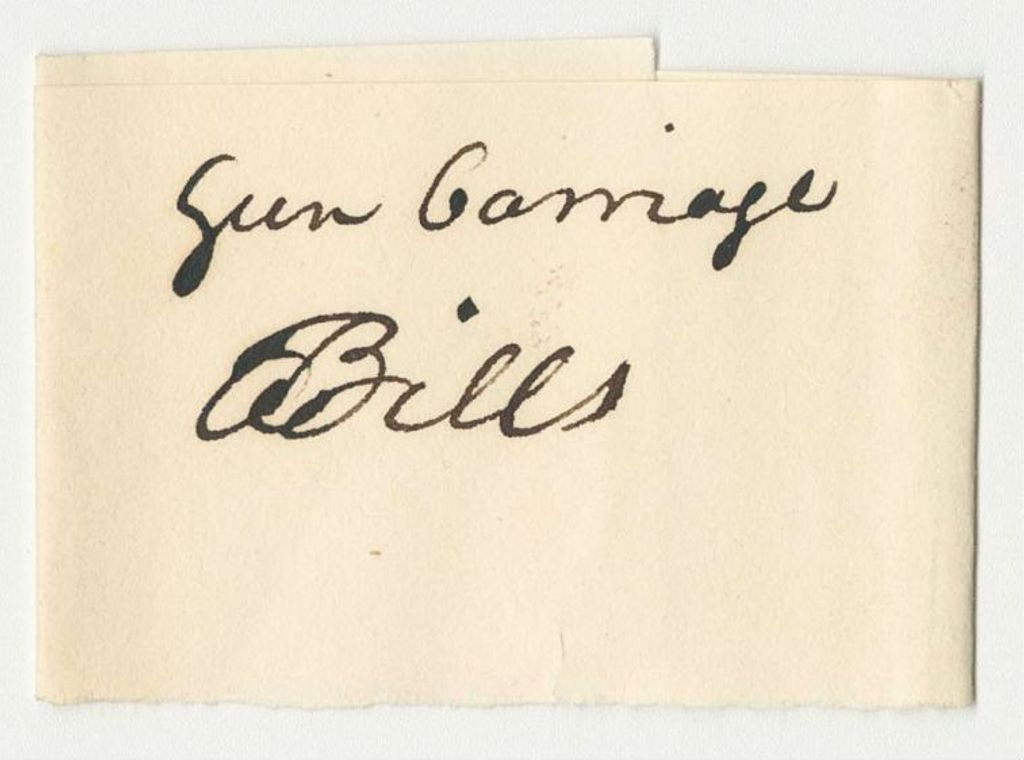 Gun Carriage
Bills